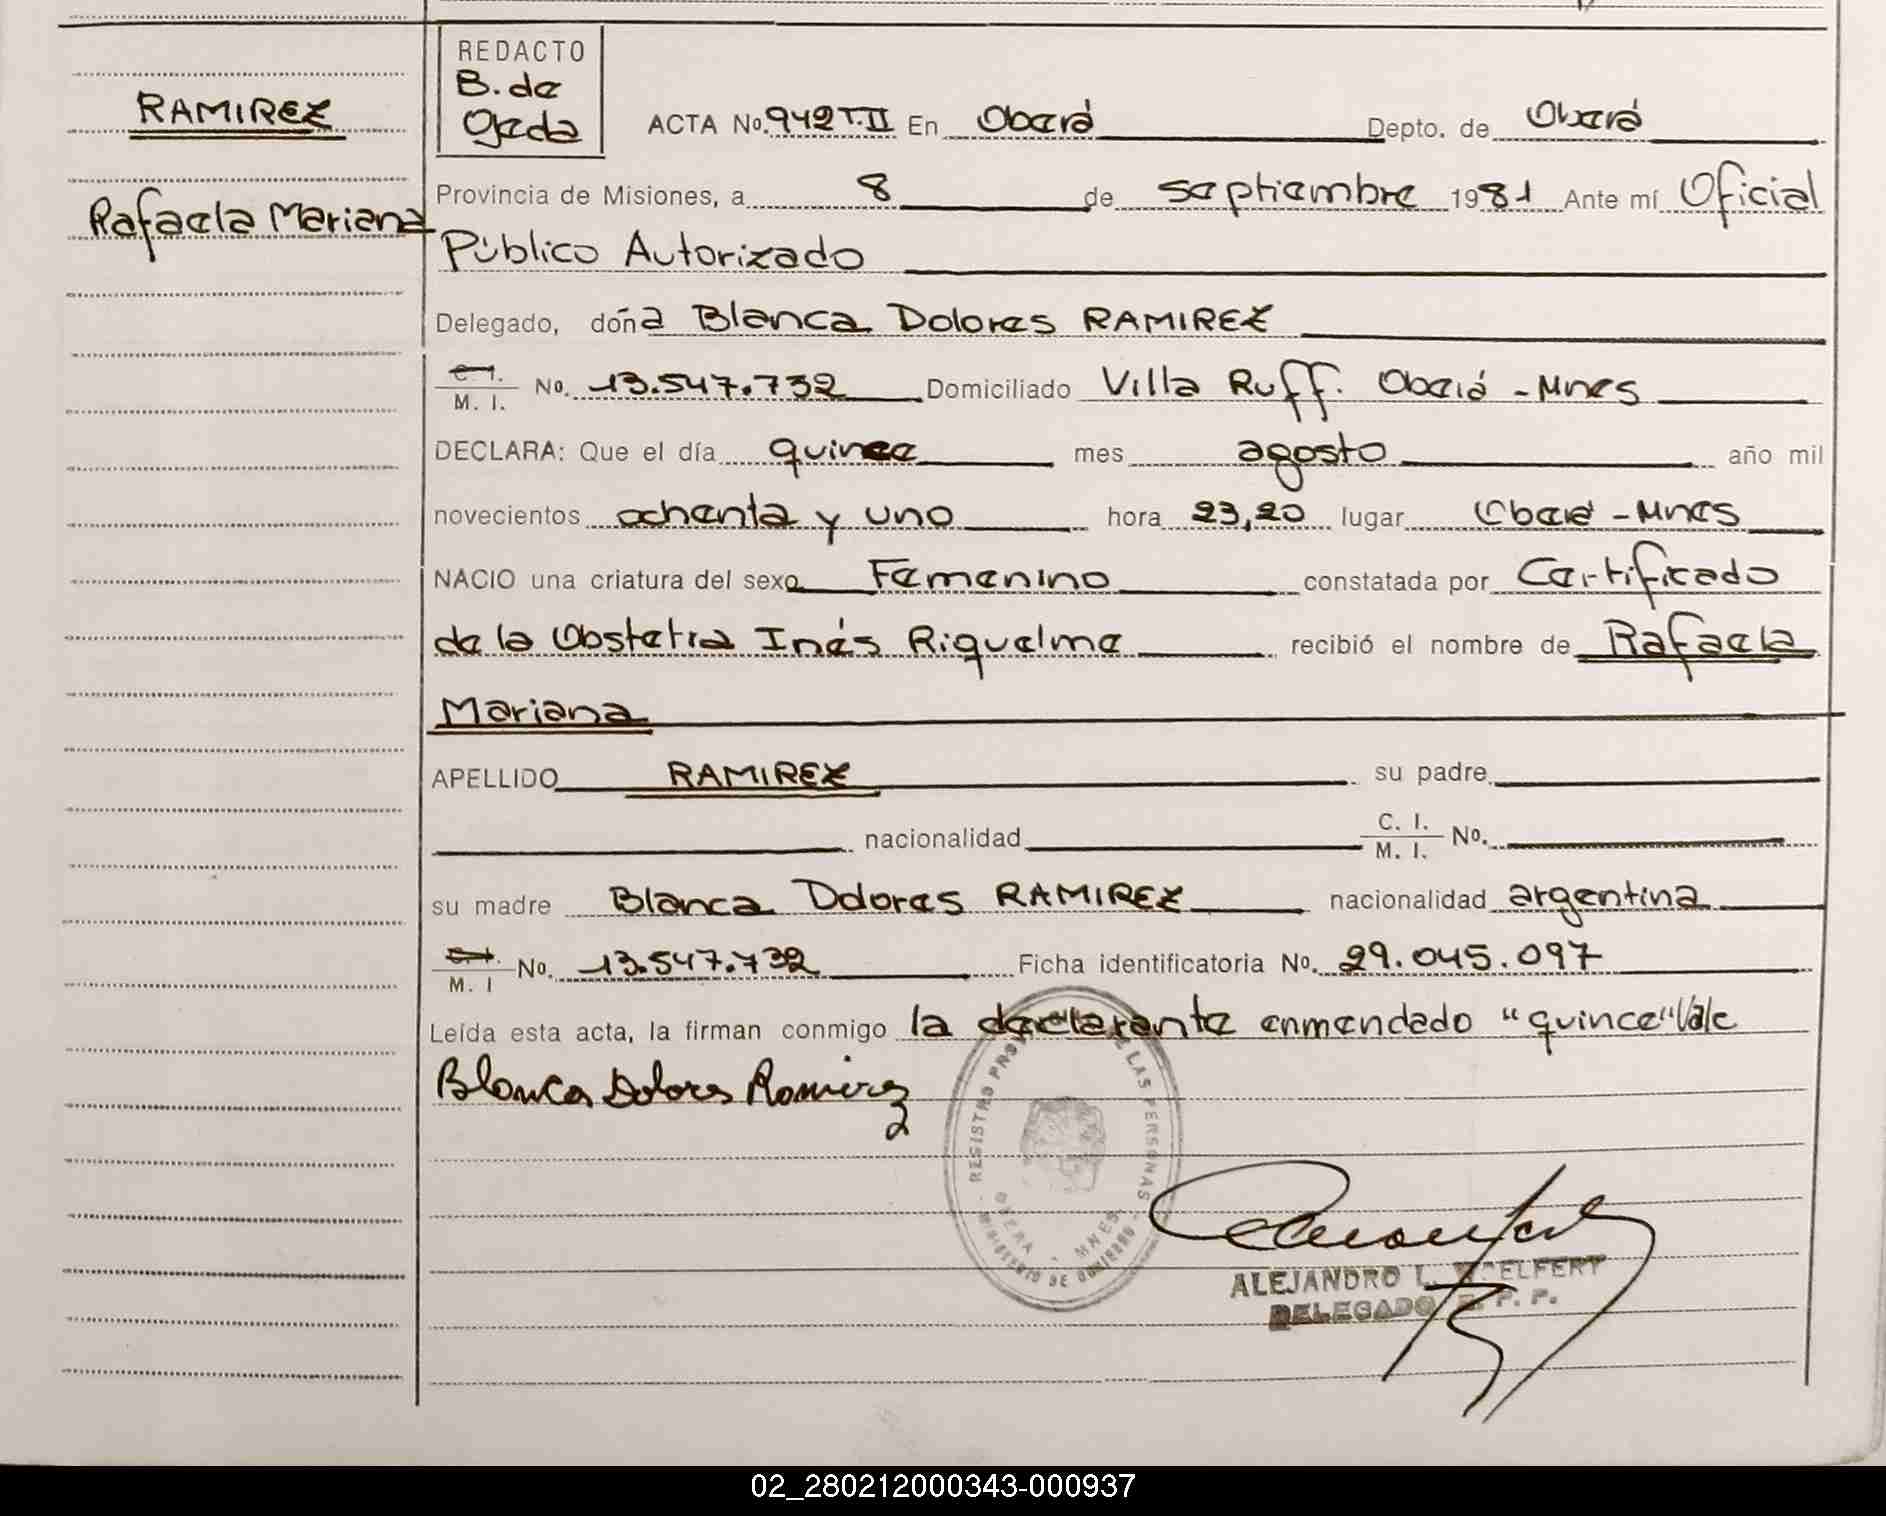 REDACTO
B. de
Ojeda
RAMIREZ
Rafaela Mariana
ACTA No. 942 T.II En Oberá Depto. de Oberá
Provincia de Misiones, a 8 de septiembre 1981 Ante mí Oficial
Público Autorizado
Delegado, doña Blanca Dolores RAMIREZ
C. I.
M. I. No. 13.547.732 Domiciliado Villa Ruff. Oberá - Mnes
DECLARA: Que el día quince mes agosto año mil
novecientos ochenta y uno hora 23,20 lugar Oberá - Mnes
NACIO una criatura del sexo Femenino constatada por Certificado
de la Obstetra Inés Riquelme recibió el nombre de Rafaela
Mariana
APELLIDO RAMIREZ su padre
nacionalidad C. I.
M. I. No.
su madre Blanca Dolores RAMIREZ nacionalidad argentina
C. I.
M. I No. 13.547.732 Ficha identificatoria No. 29.045.097
Leída esta acta, la firman conmigo la declarante enmendado "quince" Vale
Blanca Dolores Ramirez
REGISTRO PROV DE LAS PERSONAS
OBERA - MNES.
MINISTERIO DE GOBIERNO
ALEJANDRO L.
DELEGADO R. P. P.
02_280212000343-000937